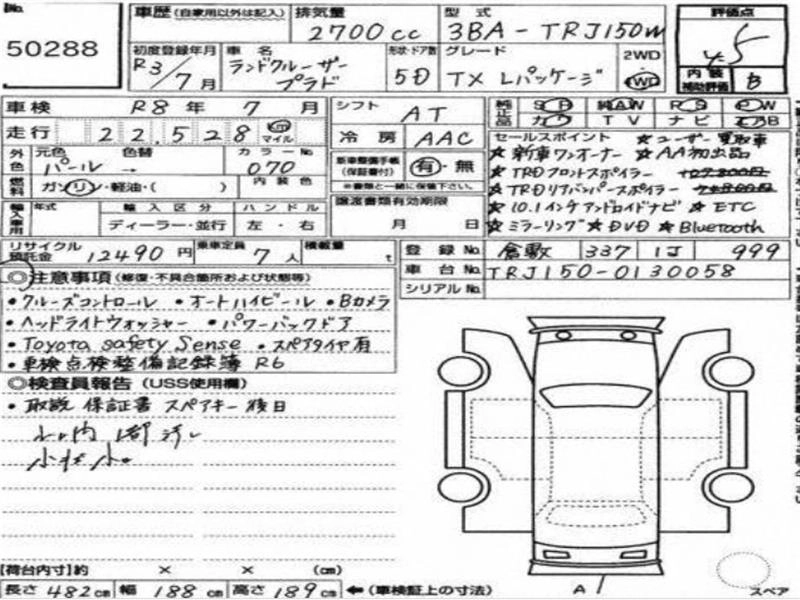 No. 50288
車歴 (自家用以外は記入) 排気量 2700cc 型式 3BA-TRJ150W 評価点 5
初度登録年月 R3/7月 車名 ランドクルーザー プラド 形状・ドア数 5D グレード TX Lパッケージ 2WD 4WD 内装 補助評価 B
車検 R8年 7月 シフト AT 純正品 SR AW PS PW
走行 22,528 km マイル 冷房 AAC カワ TV ナビ エアB
外色 元色 パール 色替 → カラーNo. 070 新車整備手帳 (保証書付) 有・無 ※書類と一緒に保管下さい。
燃料 ガソリン・軽油・( ) 内装色 譲渡書類有効期限 月 日
輸入車用 年式 輸入区分 ディーラー・並行 ハンドル 左・右
セールスポイント ☆ユーザー買取車
☆新車ワンオーナー ☆AA初出品
☆TRDフロントスポイラー
☆TRDリアバンパースポイラー
☆10.1インチアンドロイドナビ ☆ETC
☆ミラーリング ☆DVD ☆Bluetooth
リサイクル預託金 12490円 乗車定員 7人 積載量 t
登録No. 倉敷 337 1J 999
車台No. TRJ150-0130058
シリアルNo.
◎注意事項 (修復・不具合個所および状態等)
・クルーズコントロール ・オートハイビール ・Bカメラ
・ヘッドライトウォッシャー ・パワーバックドア
・Toyota safety Sense ・スペアタイヤ有
・車検点検整備記録簿 R6
◎検査員報告 (USS使用欄)
・取説 保証書 スペアキー 後日
内 汚
小
【荷台内寸】約 × × (cm)
長さ 482cm 幅 188cm 高さ 189cm ←(車検証上の寸法)
A1
スペア